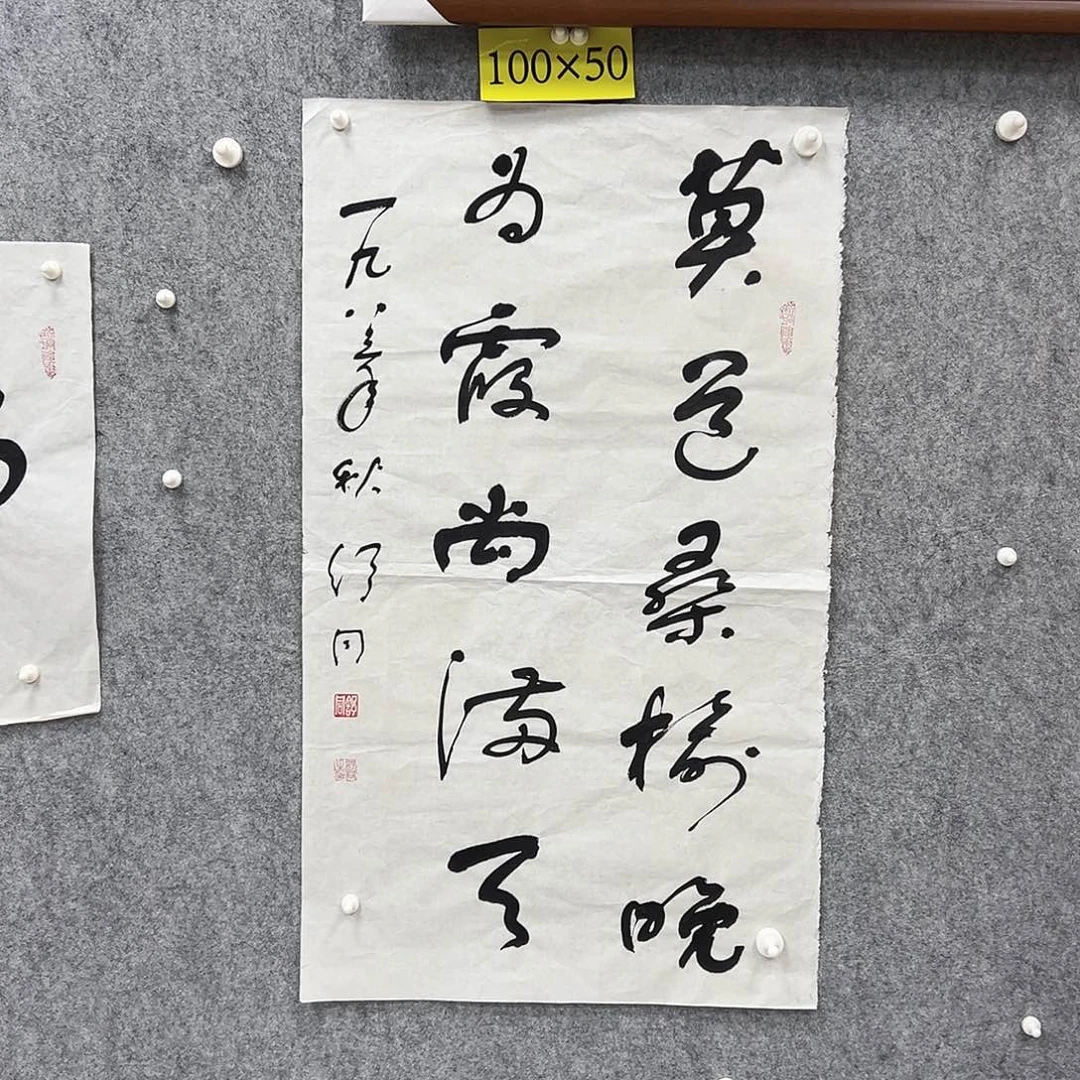 100×50
莫道桑榆晚
为霞尚满天
一九八三年秋 舒同